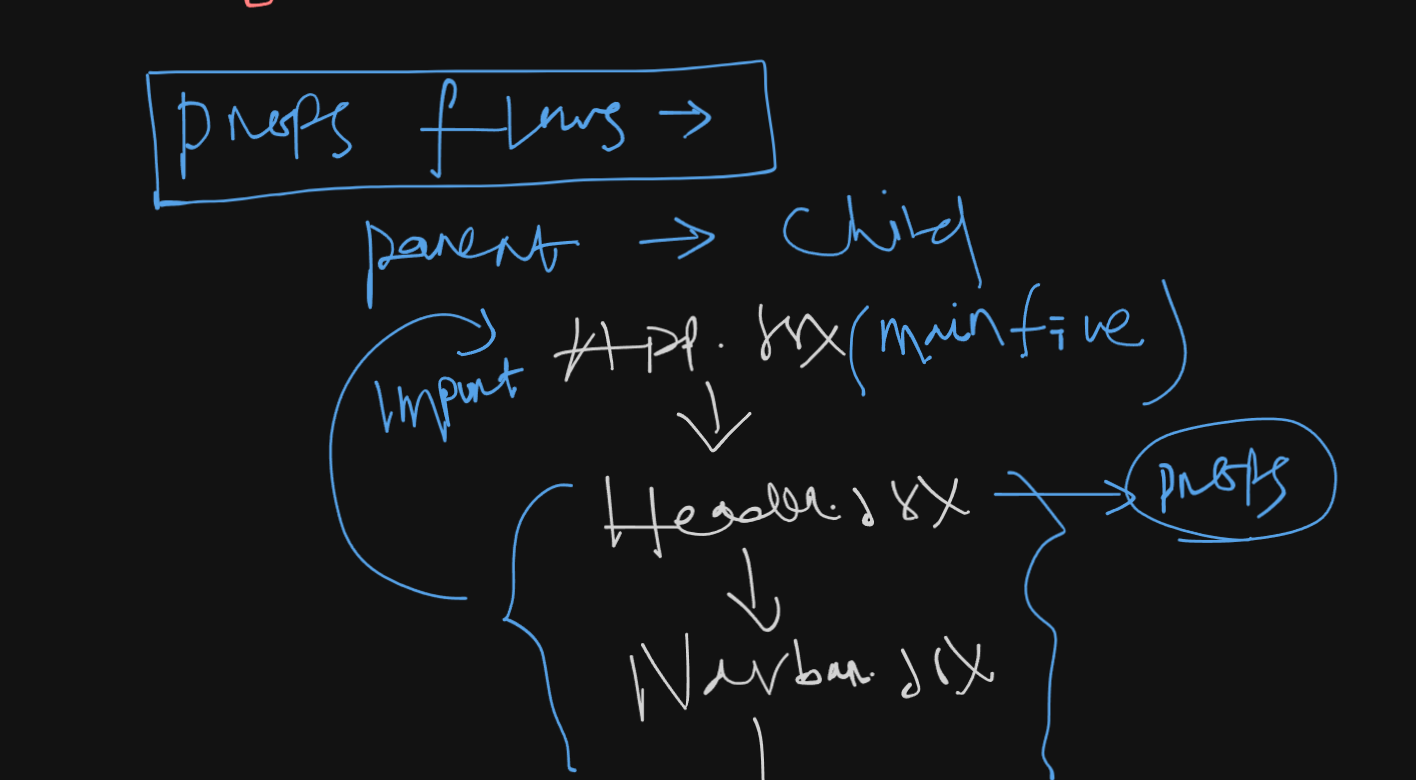 props flows →
parent → child
import
App.jsx (main file)
Header.jsx → props
Navbar.jsx